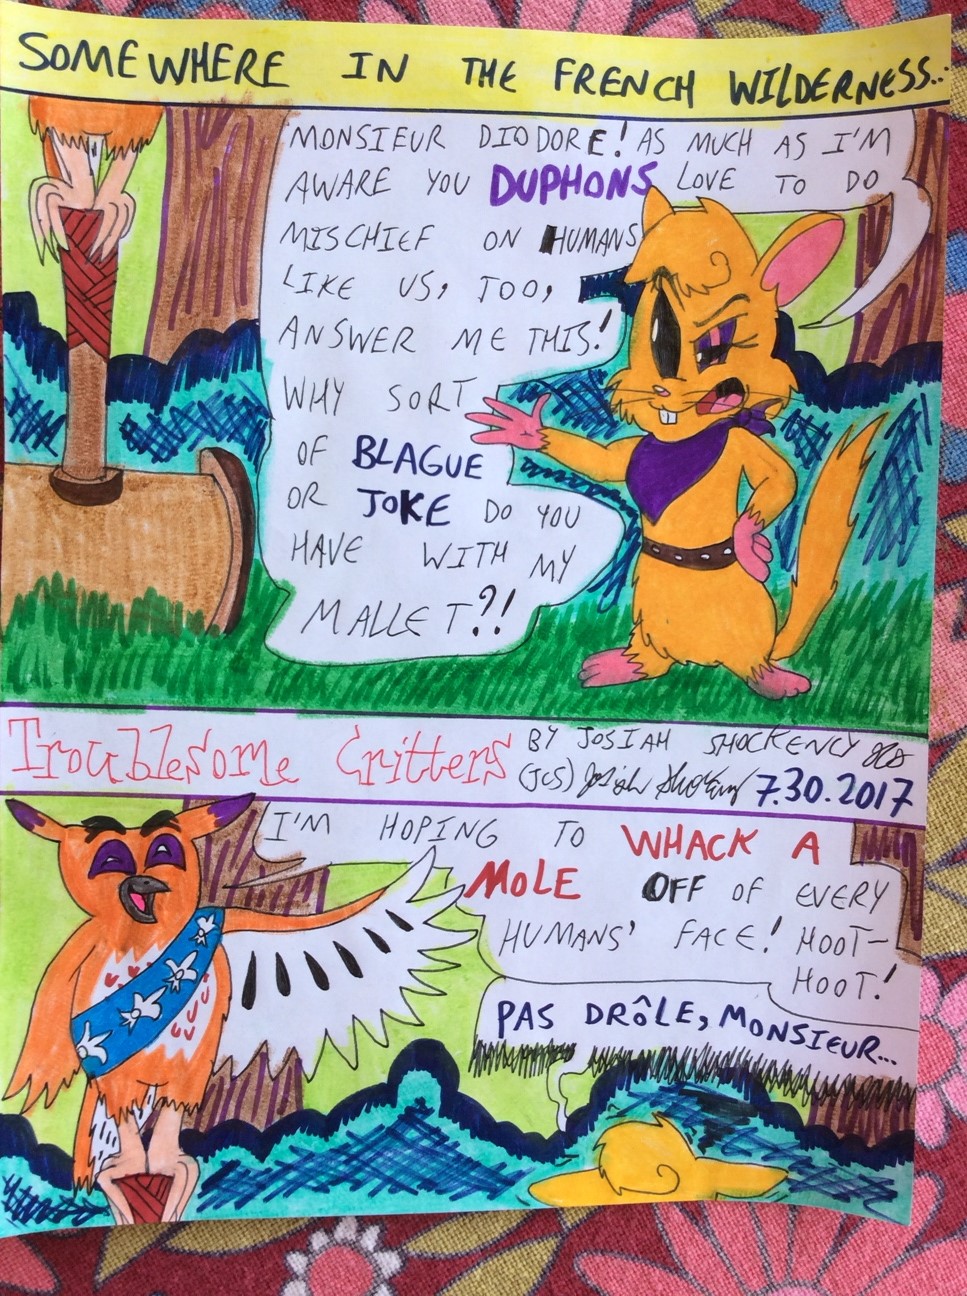 SOMEWHERE IN THE FRENCH WILDERNESS...
MONSIEUR DIODORE! AS MUCH AS I'M
AWARE YOU DUPHONS LOVE TO DO
MISCHIEF ON HUMANS
LIKE US, TOO,
ANSWER ME THIS!
WHY SORT
OF BLAGUE
OR JOKE DO YOU
HAVE WITH MY
MALLET?!
Troublesome Critters
BY JOSIAH SHOCKENCY
(JCS) 7.30.2017
I'M HOPING TO WHACK A
MOLE OFF OF EVERY
HUMANS' FACE! HOOT-
HOOT!
PAS DRÔLE, MONSIEUR...